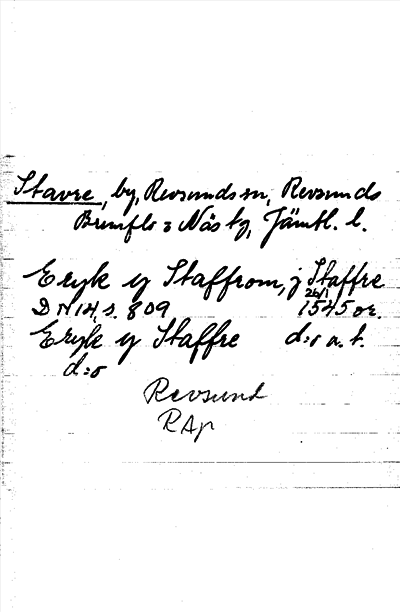 Stavre, by, Revsunds sn, Revsunds
Brunflo o Näs tg, Jämtl. l.
Eryk y Staffrom, j Staffre
DN 14, s. 809 26/1 1545 or.
Eryk y Staffre d:o a. t.
d:o
Revsund
RAp